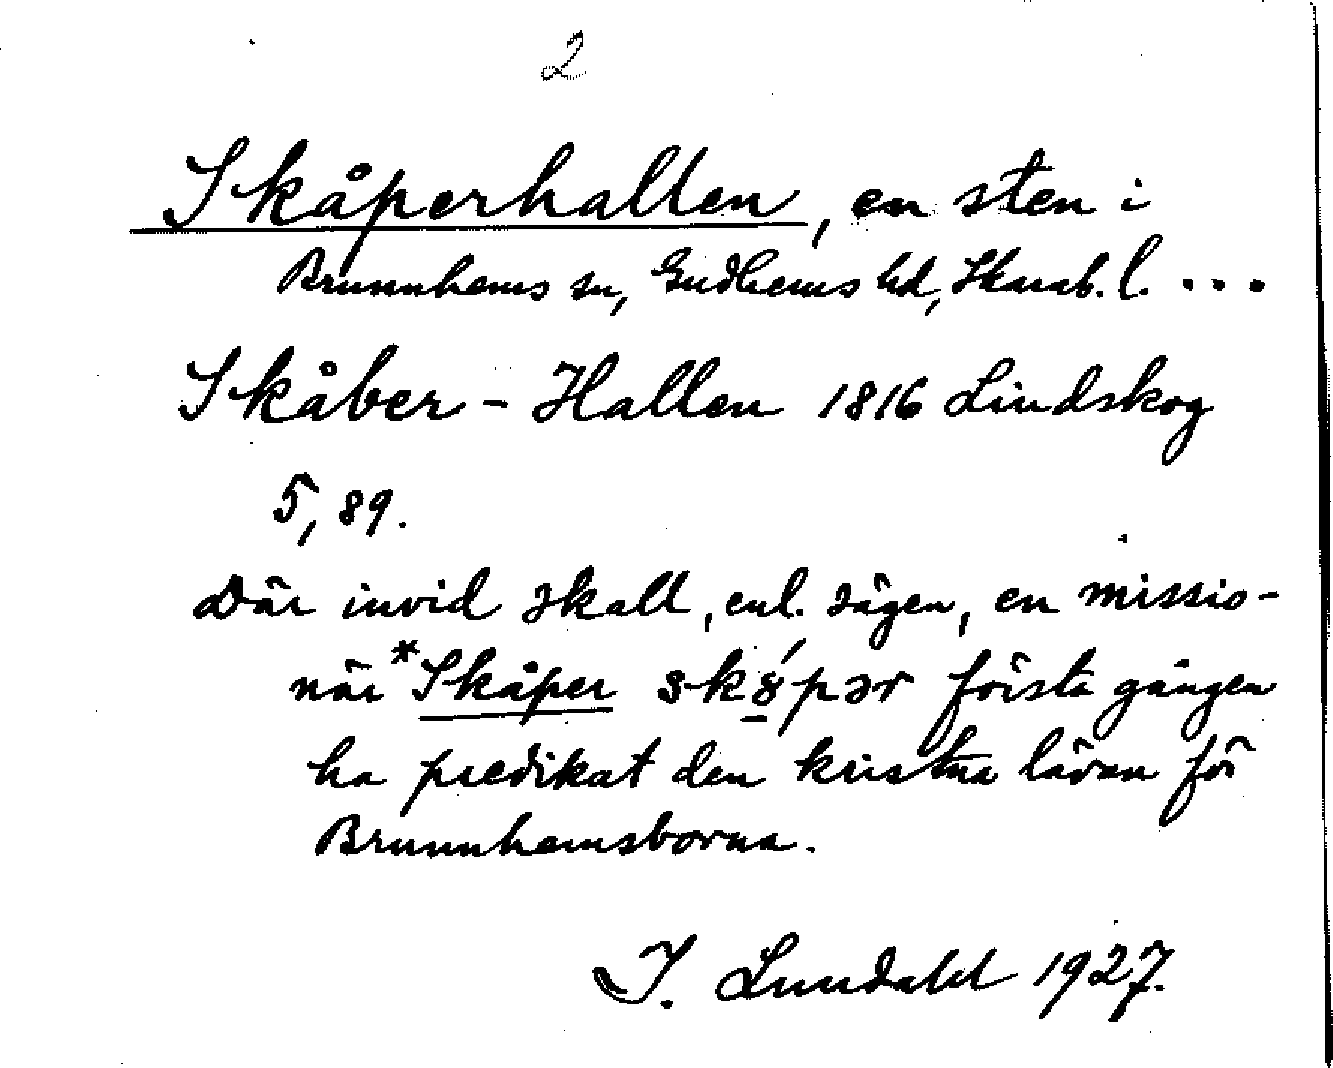 2
Skåperhallen, en sten i
Brunnhems sn, Gudhems hd, Skarab. l. ...
Skåber-Hallen 1816 Lindskog
5, 89.
Där invid skall, enl. sägen, en missio-
när *Skåper skɤ́pər första gången
ha predikat den kristna läran för
Brunnhemsborna.
I. Lundahl 1927.